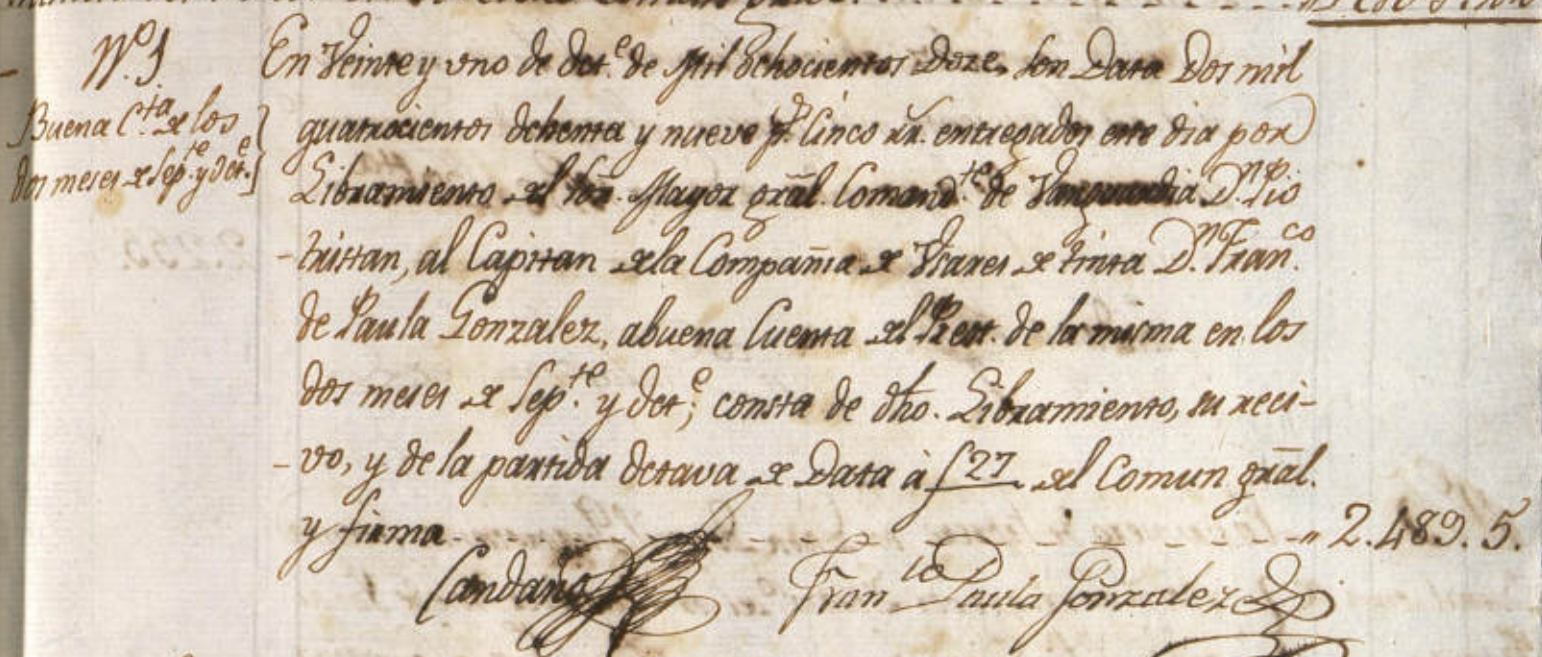 Nº. 1
Buena Cta. de los
dos meses de Septe. y Octe.
En Veinte y uno de Octe. de Mil Ochocientos Doze, son Data Dos mil
quatrocientos Ochenta y nueve ps. Cinco rr. entregados este dia por
Libramiento del Sor. Mayor gral. Comandte. de Vanguardia Dn. Pio
-tristan, al Capitan dela Compañia de Usares de tinta Dn. Franco.
de Paula Gonzalez, abuena Cuenta del Prest. de la misma en los
dos meses de Septe. y Octe; consta de dho. Libramiento, su reci-
-vo, y de la partida Octava de Data à f 27 del Comun gral.
y firma - - - - - - - - - - - - - - - - - - " 2.489. 5.
Candaño
Franco Paula Gonzalez